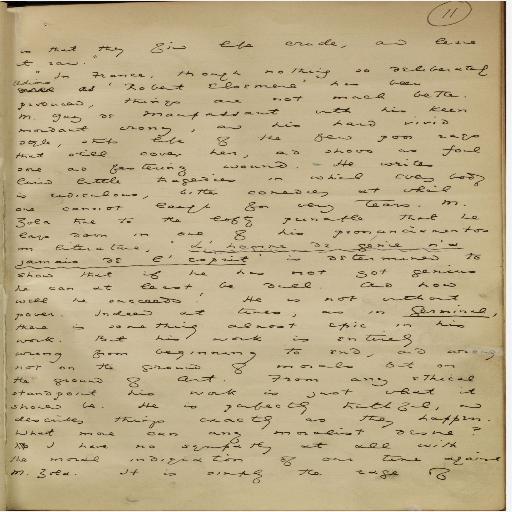 11
is that they find life crude, and leave
it raw."
"In France, though nothing so deliberately
tedious as 'Robert Elsmere' has been
produced, things are not much better.
M. Guy de Maupassant with his keen
mordant irony, and his hard vivid
style, strips life of the few poor rags
that still cover her, and shows us foul
sore and festering wound. He writes
lurid little tragedies in which everybody
is ridiculous, bitter comedies at which
one cannot laugh for very tears. M.
Zola true to the lofty principle that he
lays down in one of his pronunciamientos
on literature, 'L'homme de génie n'a
jamais de l'esprit' is determined to
show that if he has not got genius
he can at least be dull. And how
well he succeeds! He is not without
power. Indeed at times, as in Germinal,
there is something almost epic in his
work. But his work is entirely
wrong from beginning to end, and wrong
not on the ground of morals but on
the ground of Art. From any ethical
standpoint his work is just what it
should be. He is perfectly truthful, and
describes things exactly as they happen.
What more can any moralist desire?
I have no sympathy at all with
the moral indignation of our time against
M. Zola. It is simply the rage of